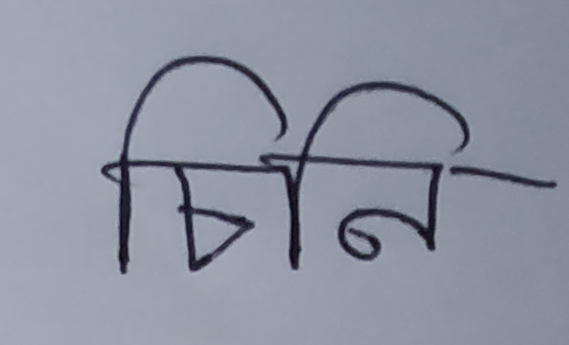 চিনি -